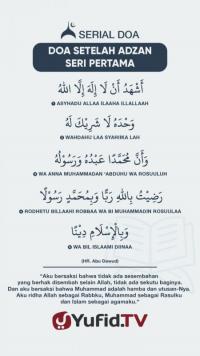 SERIAL DOA
DOA SETELAH ADZAN
SERI PERTAMA
أَشْهَدُ أَنْ لَا إِلَهَ إِلَّا اللهُ
ASYHADU ALLAA ILAAHA ILLALLAAH
وَحْدَهُ لَا شَرِيْكَ لَهُ
WAHDAHU LAA SYARIIKA LAH
وَأَنَّ مُحَمَّدًا عَبْدُهُ وَرَسُوْلُهُ
WA ANNA MUHAMMADAN 'ABDUHU WA ROSUULUH
رَضِيْتُ بِاللهِ رَبًّا وَبِمُحَمَّدٍ رَسُوْلًا
RODHIITU BILLAAHI ROBBAA WA BI MUHAMMADIN ROSUULAA
وَبِالْإِسْلَامِ دِيْنًا
WA BIL ISLAAMI DIINAA
(HR. Abu Dawud)
"Aku bersaksi bahwa tidak ada sesembahan
yang berhak disembah selain Allah, tidak ada sekutu baginya.
Dan aku bersaksi bahwa Muhammad adalah hamba dan utusan-Nya.
Aku ridha Allah sebagai Rabbku, Muhammad sebagai Rasulku
dan Islam sebagai agamaku."
Yufid.TV